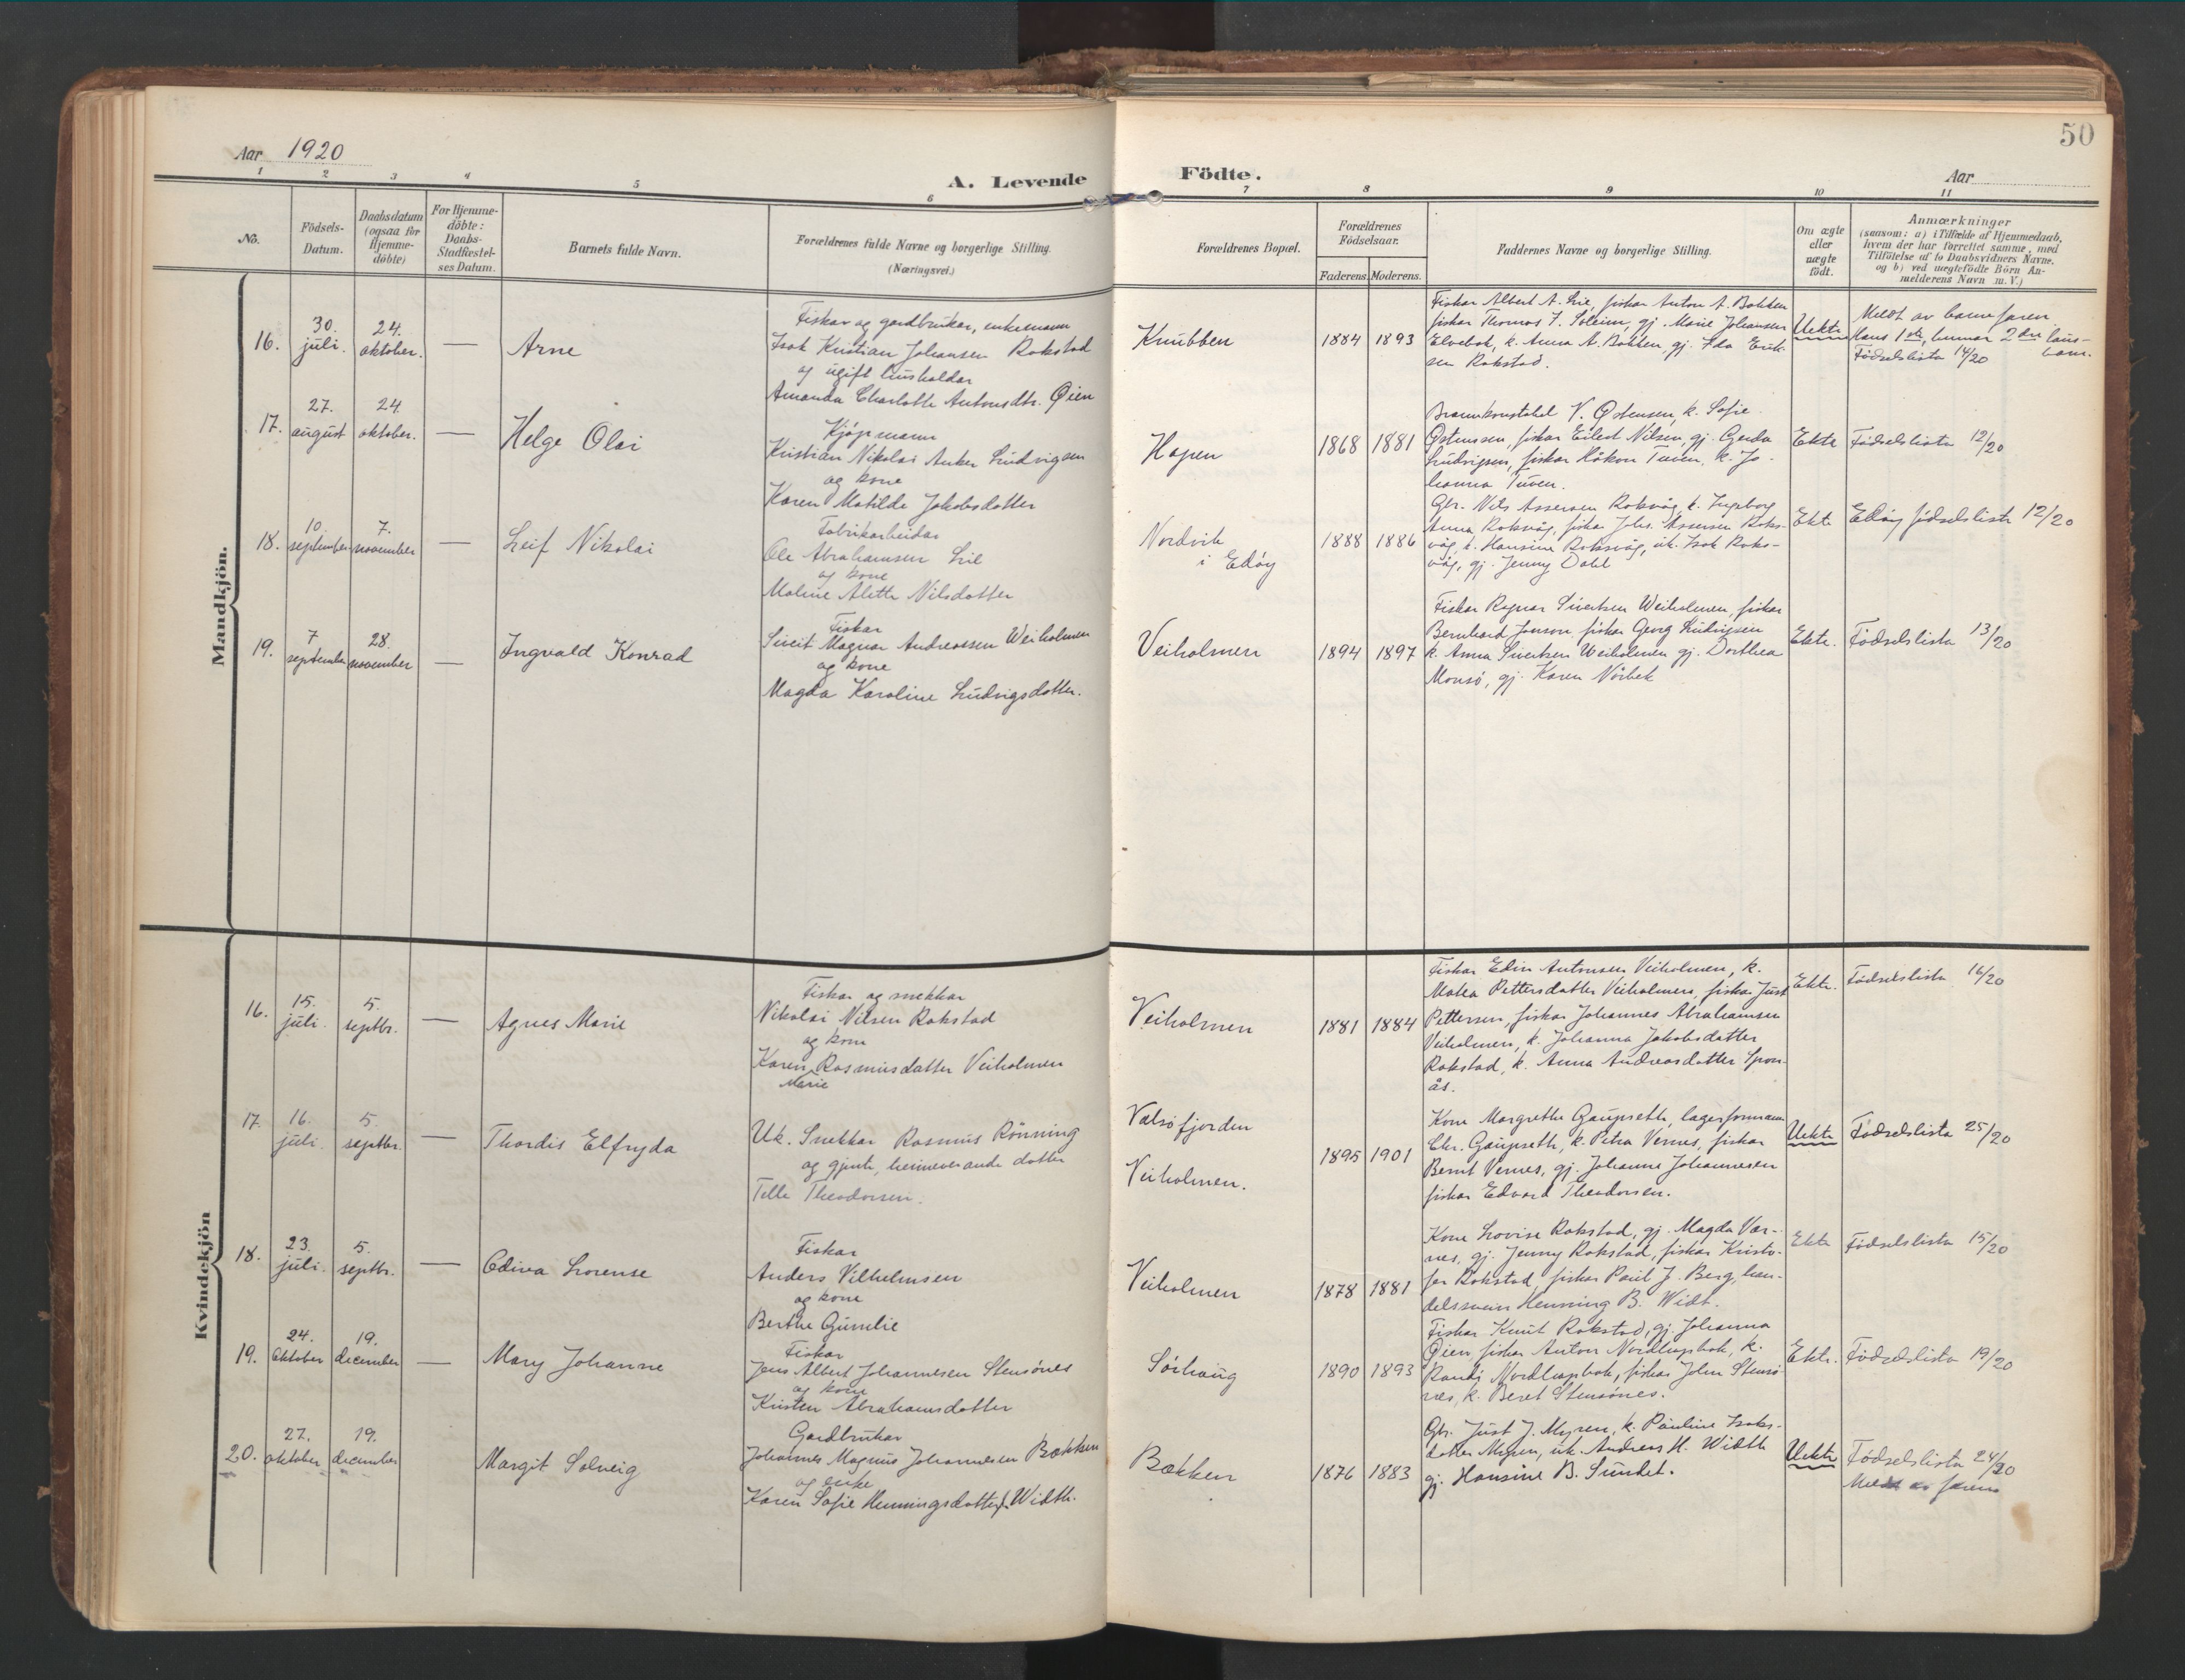 50
Aar 1920
A. Levende Födte.
Aar
1 2 3 4 5 6 7 8 9 10 11
No.
Födsels-
Datum.
Daabsdatum
(ogsaa for
Hjemme-
döbte)
For Hjemme-
döbte:
Daabs-
Stadfæstel-
ses Datum.
Barnets fulde Navn.
Forældrenes fulde Navne og borgerlige Stilling.
(Næringsvei.)
Forældrenes Bopæl.
Forældrenes
Födselsaar.
Faderens. Moderens.
Faddernes Navne og borgerlige Stilling.
Om ægte
eller
uægte
födt.
Anmærkninger
(saasom: a) i Tilfælde af Hjemmedaab,
hvem der har forrettet samme, med
Tilföielse af to Daabsvidners Navne,
og b) ved uægtefödte Börn An-
melderens Navn m. V.)
Mandkjön.
16.
30.
juli.
24.
oktober.
—
Arne
Fiskar og gardbrukar, enkemann
Isak Kristian Johansen Rokstad
og ugift hushaldar
Amanda Charlotte Antonsdtr. Øien
Knubben
1884 1893
Fiskar Albert A. Lie, fiskar Anton A. Bakken
fiskar Thomas J. Soleim, gj. Marie Johansen
Elvebak, k. Anna A. Bakken, gj. Ida Erik-
sen Rokstad.
Uekte
Meldt av barnefaren
Hans 1ste, hennar 2dre laus-
barn.
Födselslista 14/20
17.
27.
august
24.
oktober.
—
Helge Olai
Kjöpmann
Kristian Nikolai Anker Ludvigsen
og kone
Karen Matilde Jakobsdatter
Hopen
1868 1881
Brannkonstabel V. Østensen, k. Sofie
Østenssen, fiskar Eilert Nilsen, gj. Gerda
Ludvigsen, fiskar Håkon Tuven, k. Jo-
hanna Tuven.
Ekte
Födselslista 12/20
18.
10.
september
7.
november
—
Leif Nikolai
Fabrikarbeidar
Ole Abrahamsen Lie
og kone
Maline Alette Nilsdatter
Nordvik
i Edöy
1888 1886
Gbr. Nils Assersen Roksvåg, k. Ingeborg
Anna Roksvåg, fiskar Johs. Assersen Roks-
våg, k. Hansine Roksvåg, uk. Isak Roks-
våg, gj. Jenny Dahl
Ekte
Edöy födselsliste 12/20
19.
7
september
28.
november
—
Ingvald Konrad
Fiskar
Sivert Magnar Andreassen Weiholmen
og kone
Magda Karoline Ludvigsdatter.
Veiholmen
1894 1897
Fiskar Ragnar Sivertsen Weiholmen, fiskar
Bernhard Jonson, fiskar Georg Ludvigsen
k. Anna Sivertsen Weiholmen gj. Dorthea
Monsö, gj. Karen Nörbek
Ekte.
Födselslista 13/20
Kvindekjön
16.
15.
juli.
5.
septbr.
—
Agnes Marie
Fiskar og snekkar
Nikolai Nilsen Rokstad
og kone
Karen Rasmusdatter Veiholmen
Marie
Veiholmen
1881 1884
Fiskar Edin Antonsen Veiholmen, k.
Malea Pettersdatter Veiholmen, fiskar Just
Pettersen, fiskar Johannes Abrahamsen
Veiholmen, k. Johanna Jakobsdatter
Rokstad, k. Anna Andreasdatter Spon-
ås.
Ekte.
Födselslista 16/20
17.
16.
juli.
5.
septbr.
—
Thordis Elfryda
Uk. Snekkar Rasmus Rönning
og gjente, heimeverande dotter
Tille Theodorsen.
Valsöfjorden
Veiholmen.
1895 1901
Kone Margrethe Gaupseth, lagerformann
Chr. Gaupseth, k. Petra Vernes, fiskar
Bernt Vernes, gj. Johanne Johannesen
fiskar Edvard Theodorsen.
Uekte
Födselslista 25/20
18.
23.
juli.
5.
septbr.
—
Odina Lorense
Fiskar
Anders Vilhelmsen
og kone
Berthe Gumelie
Veiholmen
1878 1881
Kone Lovise Rokstad, gj. Magda Vær-
nes, gj. Jenny Rokstad, fiskar Kristo-
fer Rokstad, fiskar Paul J. Berg, han-
delssvein Henning B. Widt.
Ekte
Födselslista 15/20
19.
24.
oktober
19.
december
—
Mary Johanne
Fiskar
Jens Albert Johannesen Stensönes
og kone
Kristen Abrahamsdatter
Sörhaug
1890 1893
Fiskar Knut Rokstad, gj. Johanna
Øien, fiskar Anton Nordhapbak, k.
Randi Nordhapbak, fiskar John Stensö-
nes, k. Beret Stensönes.
Ekte.
Födselslista 19/20
20.
27.
oktober
19.
december
Margit Solveig
Gardbrukar
Johannes Magnus Johannesen Bakken
og enke
Karen Sofie Henningsdatter f. Width.
Bakken
1876 1883
Gbr. Just J. Myren, k. Pauline Isaks-
datter Myren, uk. Andreas H. Width
gj. Hansine B. Sundet.
Uekte
Födselslista 24/20
Meldt av faren